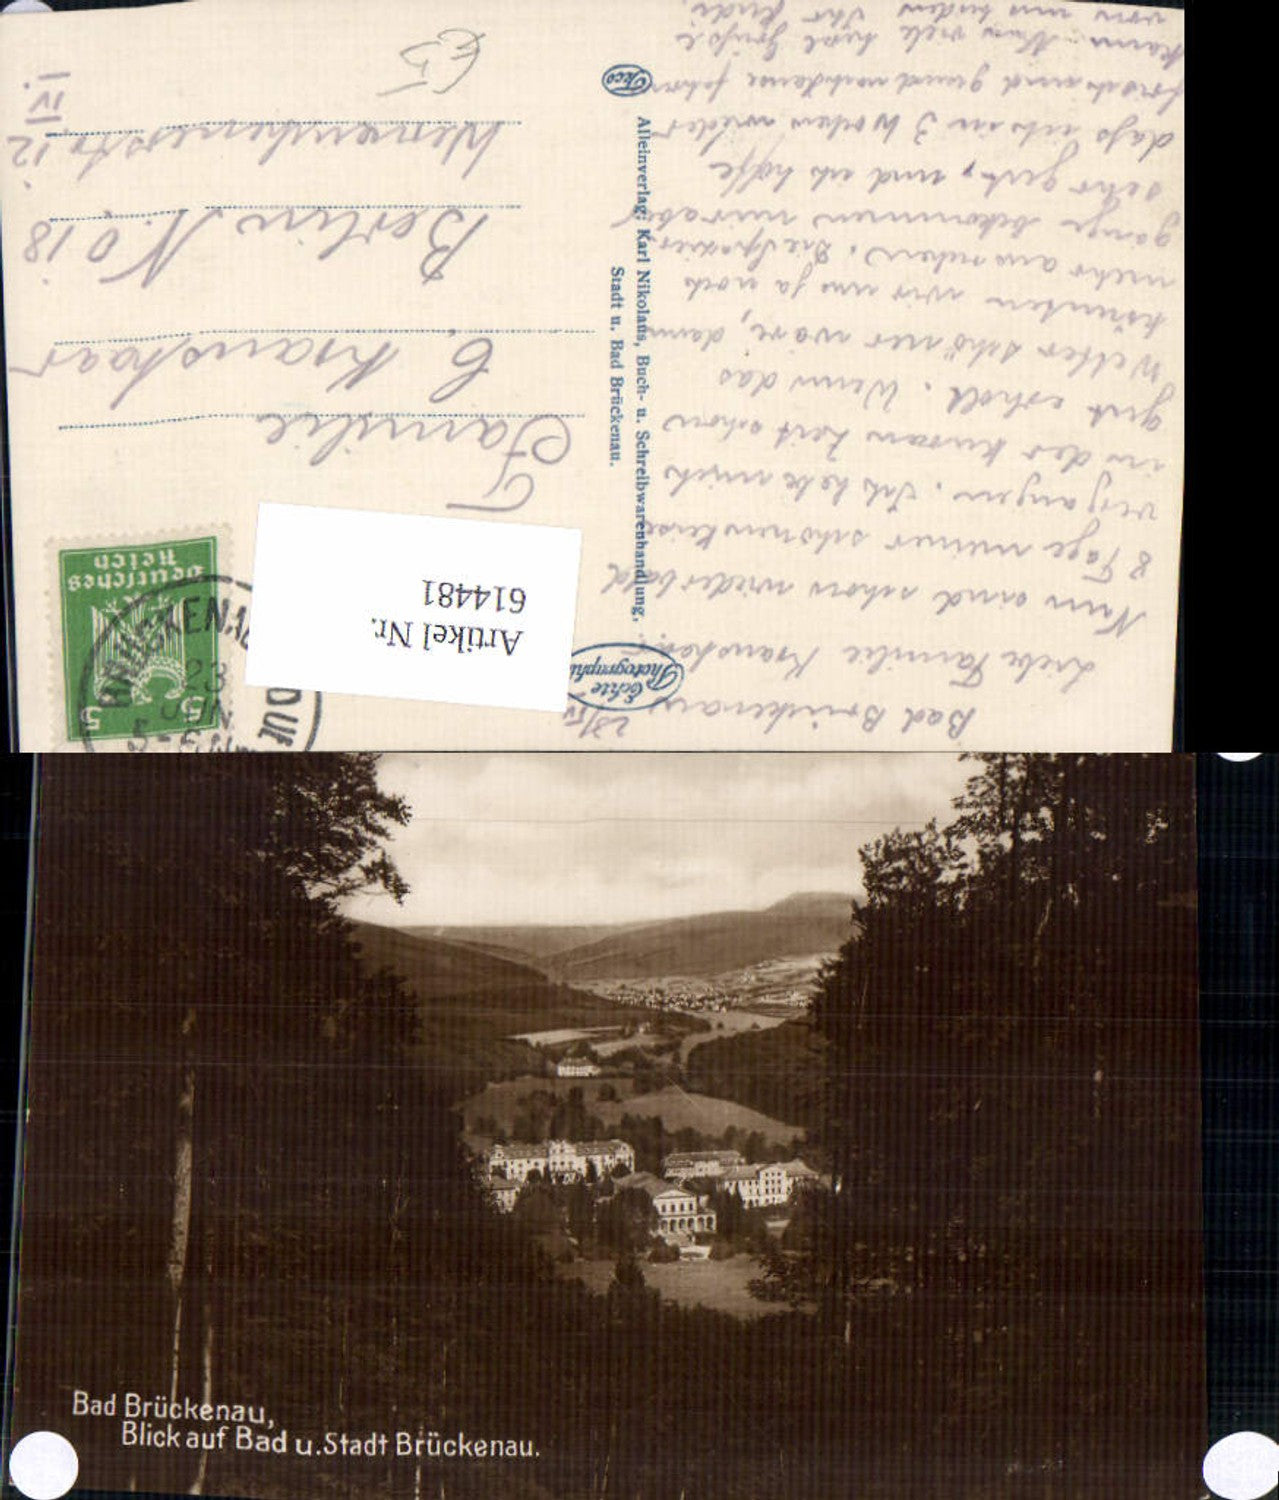 Bad Brückenau,
Liebe Familie Kranshaar.
Nun sind schon wieder bald
8 Tage meiner schönen Reise
vergangen. Ich habe mich
in der kurzen Zeit schon
gut erholt. Wenn das
Wetter schöner wäre, dann
könnten wir uns ja noch
mehr ausruhen. Die Spazier-
gänge bekommen mir aber
sehr gut, und ich hoffe
dass ich in 3 Wochen wieder
frisch und
kann. Nun viele herzl. Grüße
von
Echte
Photographie
Alleinverlag: Karl Nikolaus, Buch- u. Schreibwarenhandlung,
Stadt u. Bad Brückenau.
Deutsches
Reich
5 5
BRÜCKENAU
23
JUN
Artikel Nr.
614481
Familie
C. Kranshaar
Berlin N.O 18
12
IV.
€5
Bad Brückenau,
Blick auf Bad u. Stadt Brückenau.